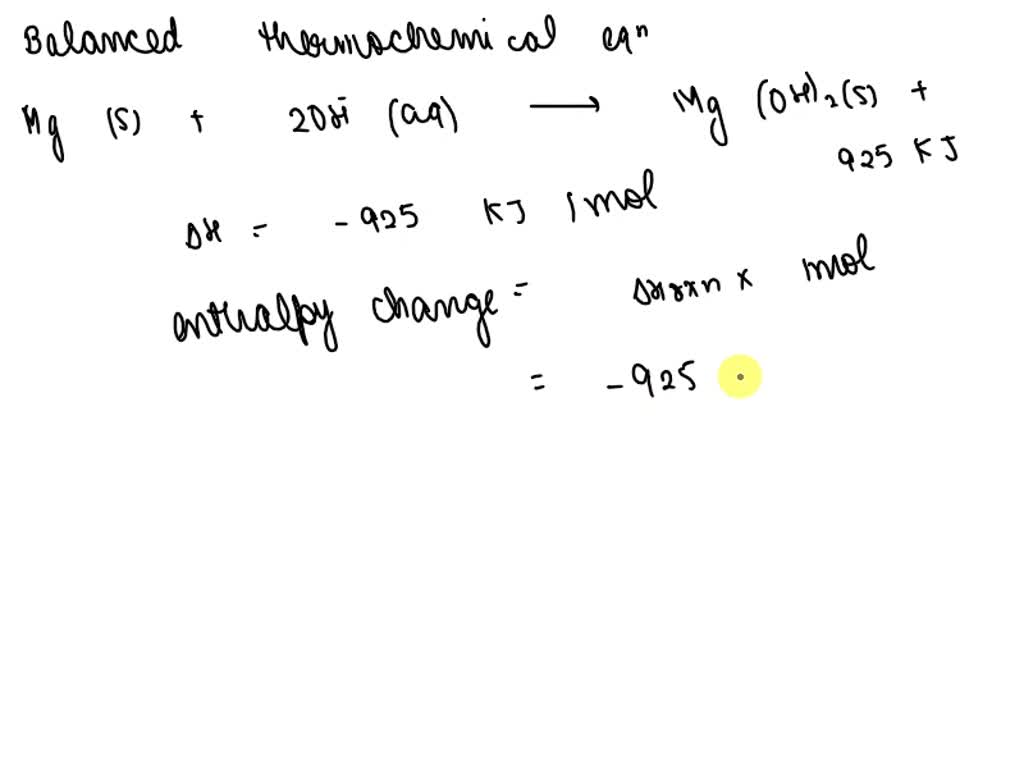 Balanced thermochemical eqⁿ
Mg (s) + 2OH⁻ (aq) ⟶ Mg (OH)₂(s) +
925 KJ
ΔH = -925 KJ / mol
enthalpy change = ΔHrxn × mol
= -925